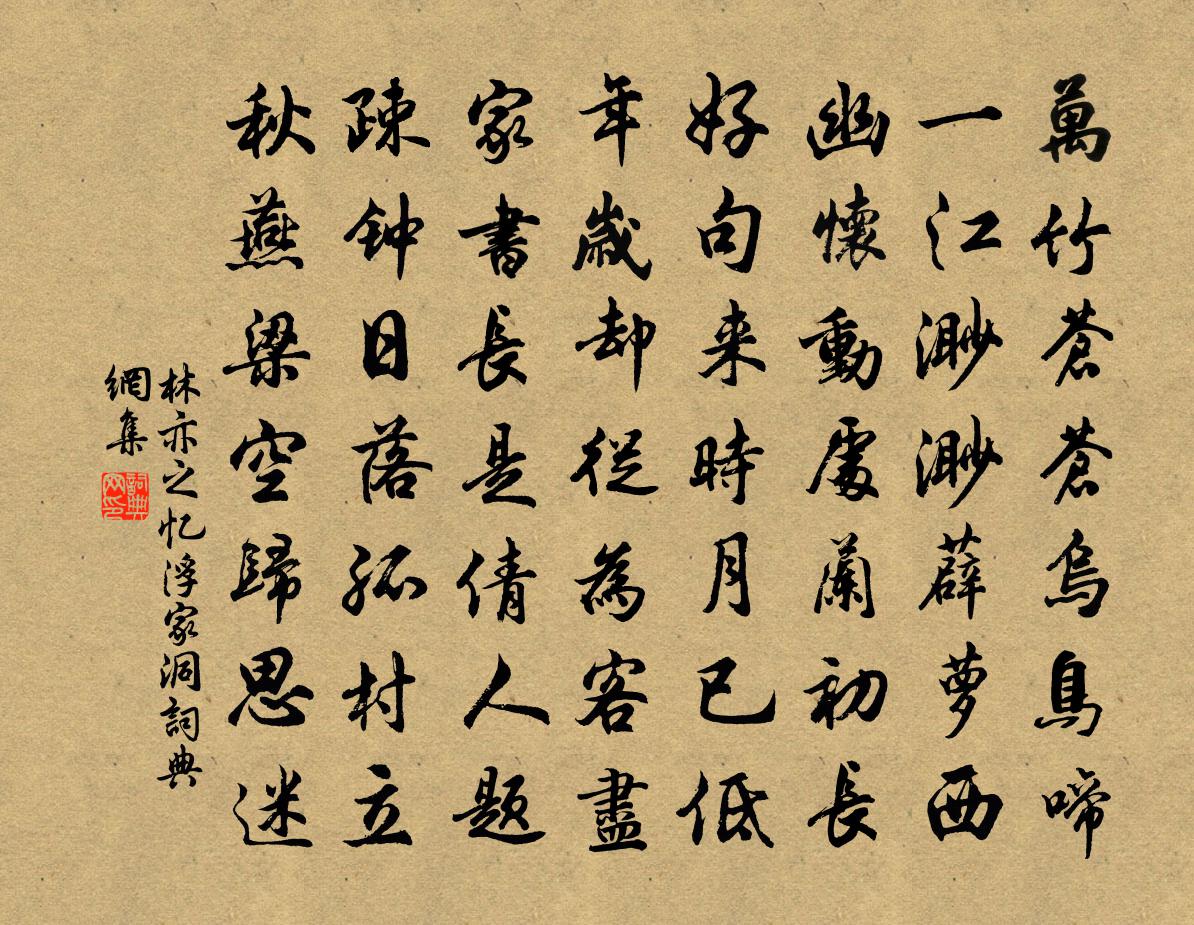 萬竹蒼蒼烏鳥啼
一江渺渺薜萝西
幽懷動處蘭初長
好句来時月已低
年歲却從為客盡
家書長是倩人题
疎钟日落孤村立
秋燕梁空歸思迷
林亦之忆浮家洞詞典
網集
詞典
网印